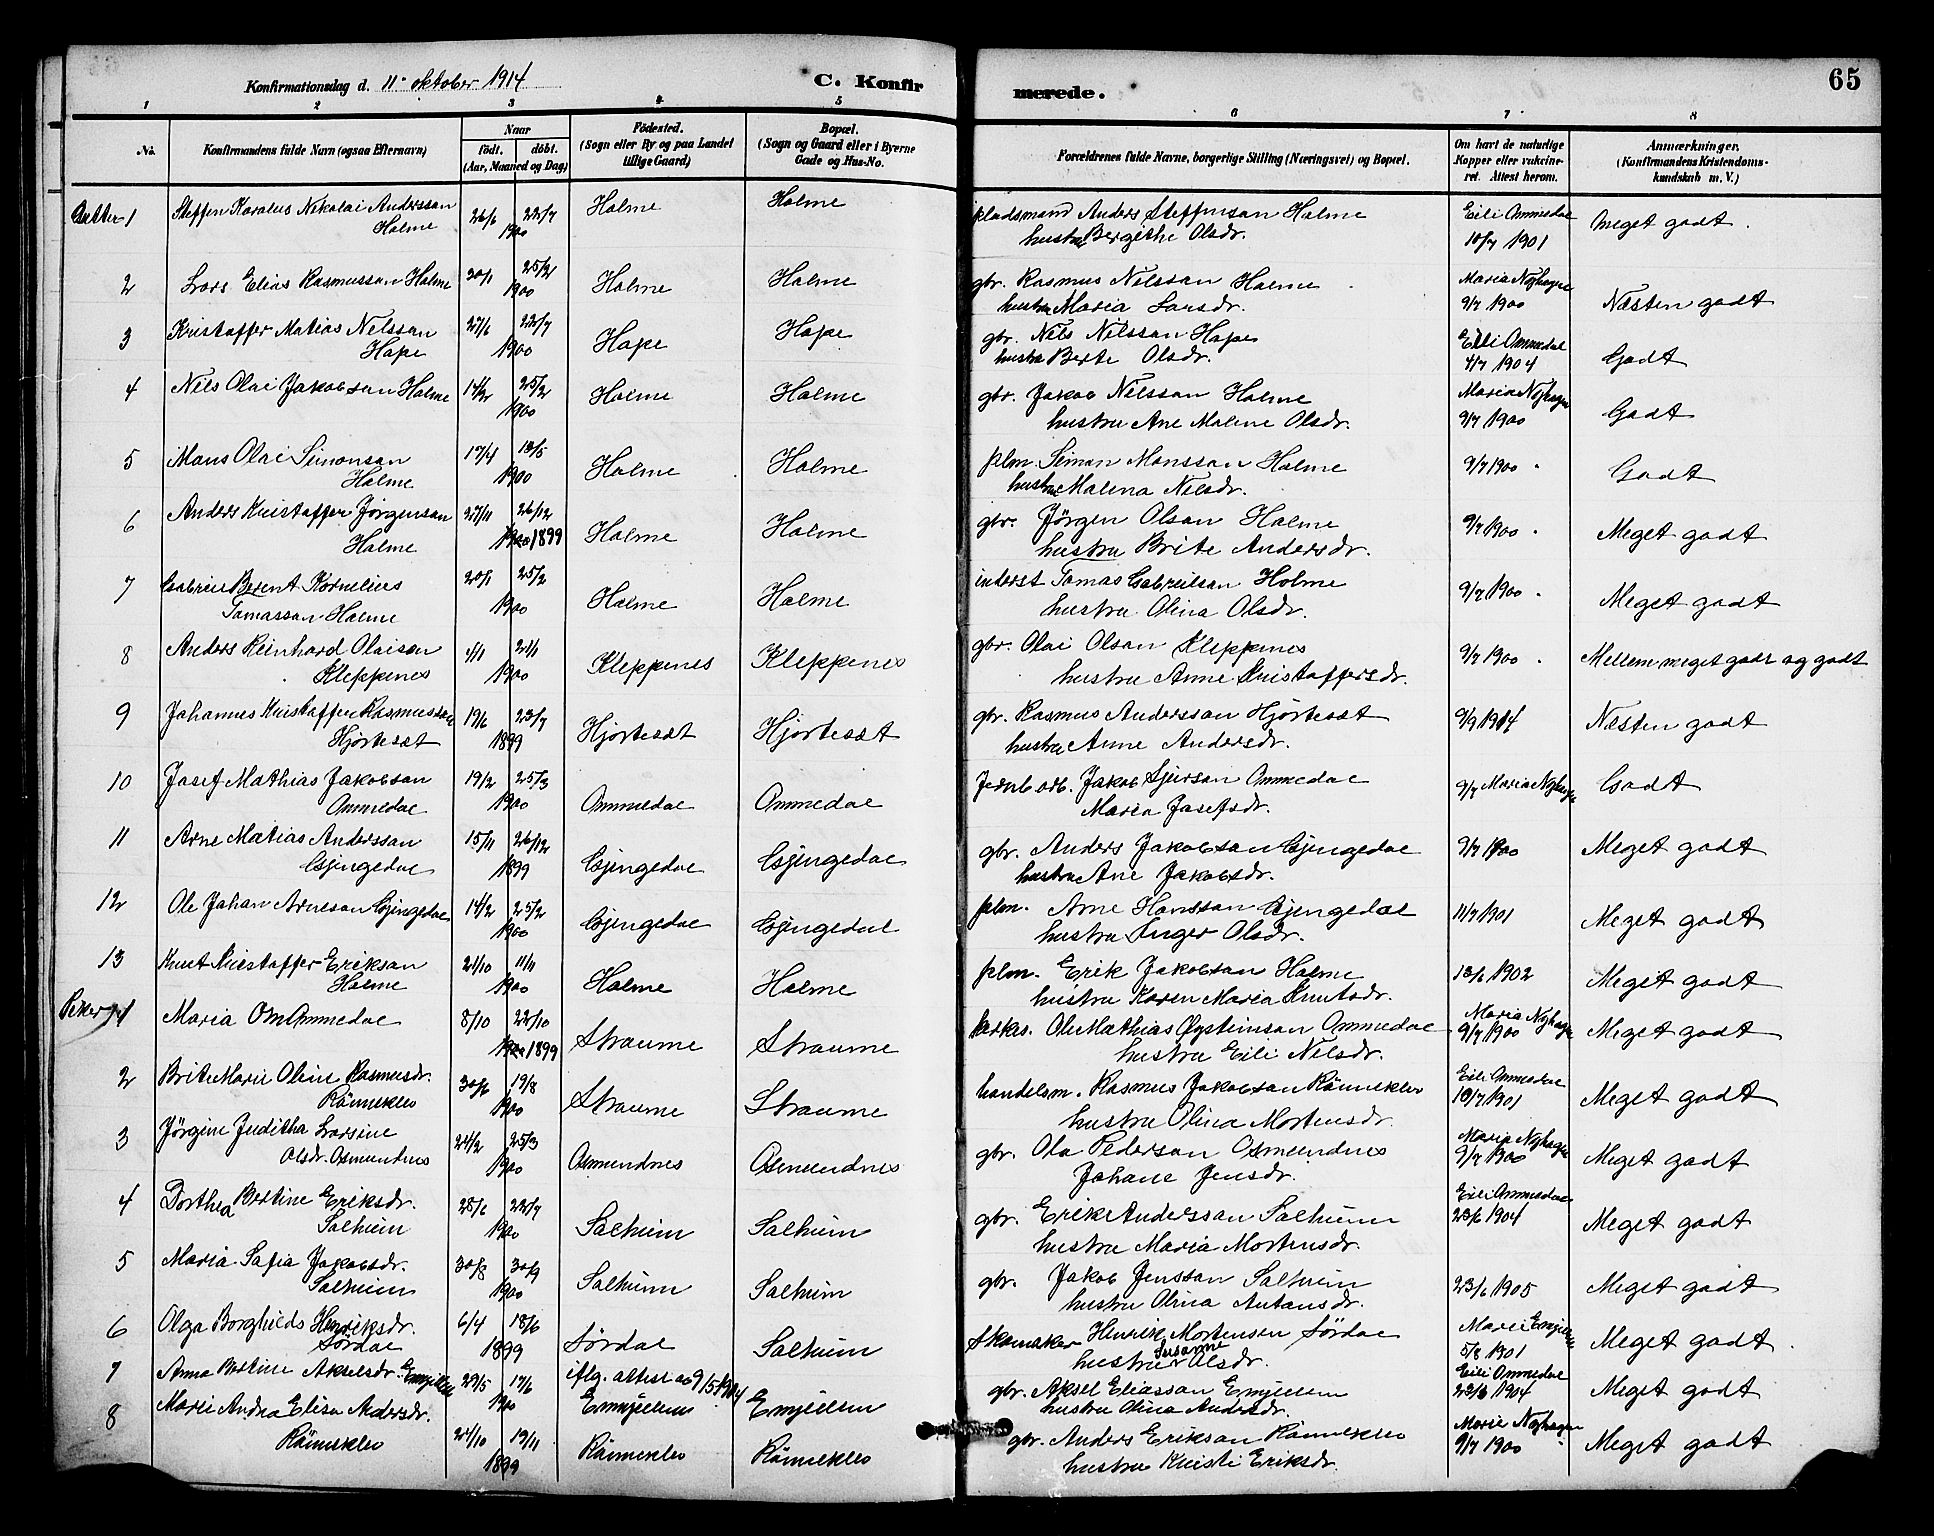 65
Konfirmationsdag d. 11. oktober 1914
C. Konfirmerede.
1 2 3 4 5 6 7 8
No. Konfirmandens fulde Navn (ogsaa Efternavn) Naar födt. döbt. (Aar, Maaned og Dag) Födested. (Sogn eller By og paa Landet tillige Gaard) Bopæl. (Sogn og Gaard eller i Byerne Gade og Hus-No. Forældrenes fulde Navne, borgerlige Stilling (Næringsvei) og Bopæl. Om havt de naturlige Kopper eller vakcineret. Attest herom. Anmærkninger. (Konfirmandens Kristendomskundskab m. V.)
Gutter 1 Steffen Karolus Nikolai Anderssan Holme 26/6 22/7 1900 Holme Holme pladsmand Anders Steffenssan Holme
hustru Bergithe Olsdr. Eili Ommedal 10/7 1901 Meget godt.
2 Lars Elias Rasmussan Holme 20/1 25/2 1900 Holme Holme gbr. Rasmus Nilssan Holme
hustru Maria Larsdr. 9/7 1900 Næsten godt
3 Kristaffer Matias Nilssan Hope 27/6 22/7 1900 Hope Hope gbr. Nils Nilssan Hope
hustru Berte Olsdr. Eili Ommedal 4/7 1904 Godt
4 Nils Olai Jakobsan Holme 14/2 25/2 1900 Holme Holme gbr. Jakob Nilssan Holme
hustru Ane Malene Olsdr. 9/7 1900 Godt
5 Mons Olai Simonsan Holme 17/4 13/5 1900 Holme Holme plm. Simon Monssan Holme
hustru Malena Nilsdr. 9/7 1900 Godt
6 Anders Kristaffer Jörgensan Holme 27/11 26/12 1899 Holme Holme gbr. Jörgen Olsan Holme
hustru Brite Andersdr. 9/7 1900 Meget godt
7 Gabriel Berent Kornelius
Tomassan Holme 20/1 25/2 1900 Holme Holme inderst Tomas Gabrielsan Holme
hustru Olina Olsdr. 9/7 1900 Meget godt
8 Anders Reinhard Olaisan Kleppenes 1/1 21/1 1900 Kleppenes Kleppenes gbr. Olai Olsan Kleppenes
hustru Anne Kristaffersdr. 9/7 1900 Mellem meget godt og godt
9 Johannes Kristaffer Rasmussan Hjorteset 19/6 23/7 1899 Hjorteset Hjorteset gbr. Rasmus Anderssan Hjorteset
hustru Anne Andersdr. 9/9 1914 Næsten godt
10 Josef Mathias Jakobsan Ommedal 19/2 25/3 1900 Ommedal Ommedal Jernb. arb. Jakob Sjursan Ommedal
Maria Josefsdr. 9/7 Godt
11 Arne Matias Anderssan Gjengedal 15/11 26/12 1899 Gjengedal Gjengedal gbr. Anders Jakobsan Gjengedal
hustru Ane Jakobsdr. 9/7 1900 Meget godt
12 Ole Johan Arnesan Gjengedal 14/2 25/2 1900 Gjengedal Gjengedal plm. Arne Hanssan Gjengedal
hustru Inger Olsdr. 11/7 1901 Meget godt
13 Knut Kristaffer Eriksan Holme 21/10 11/11 1900 Holme Holme plm. Erik Jakobsan Holme
hustru Karen Maria Knutsdr. 13/6 1902 Meget godt
Piker 1 Maria Ommedal 8/10 22/10 1899 Straume Straume Ole Mathias Øysteinsan Ommedal
hustru Eili Nilsdr. 9/7 1900 Meget godt
2 Brite Marie Oline Rasmusdr. Rönneklev 30/6 19/8 1900 Straume Straume handelsm. Rasmus Jakobsan Rönneklev
hustru Olina Mortensdr. Eili Ommedal 10/7 1901 Meget godt
3 Jörgine Juditha Larsine
Olsdr. Osmundnes 24/2 25/3 1900 Osmundnes Osmundnes gbr. Ola Pedersan Osmundnes
Johane Jensdr. 9/7 1900 Meget godt
4 Dorthea Bertine Eriksdr. Solheim 28/6 22/7 1900 Solheim Solheim gbr. Erik Anderssan Solheim
hustru Maria Mortensdr. Eili Ommedal 23/6 1904 Meget godt
5 Maria Safia Jakobsdr. Solheim 30/8 30/9 1900 Solheim Solheim gbr. Jakob Jenssan Solheim
hustru Olina Antansdr. 23/6 1905 Meget godt
6 Olga Borghilds Henriksdr. Sördal 6/4 18/6 1899 Sördal Solheim Skomaker Henrik Mortensen Sördal
hustru Susanne Olsdr. 5/8 1901 Meget godt.
7 Anna Bertine Akselsdr. Emjellen 29/5 17/6 1900 iflg. attest av 9/5 1914 Emjellen Emjellen gbr. Aksel Eliassan Emjellen
hustru Olina Andersdr. Eili Ommedal 23/6 1904 Meget godt
8 Marie Andrea Elisa Andersdr. Rönneklev 24/10 19/11 1899 Rönneklev Rönneklev gbr. Anders Eriksan Rönneklev
hustru Kristi Eriksdr. 9/7 1900 Meget godt